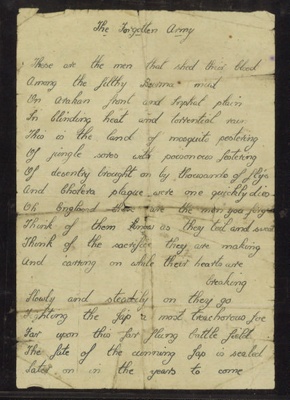 The Forgotten Army
These are the men that shed their blood
Among the filthy Burma mud
On Arakan front and Imphal plain
In blinding heat and torrential rain
This is the land of mosquito pestering
Of jungle sores with poisonous festering
Of desentry brought on by thousands of flys
And Cholera plague were one quickly dies
Oh England these are the men you
Think of them as they toil and
Think of the sacrifice they are making
And carrying on while their hearts are
breaking
Slowly and steadily on they go
Fighting the Jap a most treacherous foe
Far upon this far flung battle field
The fate of the cunning Jap is sealed
Later on in the years to come